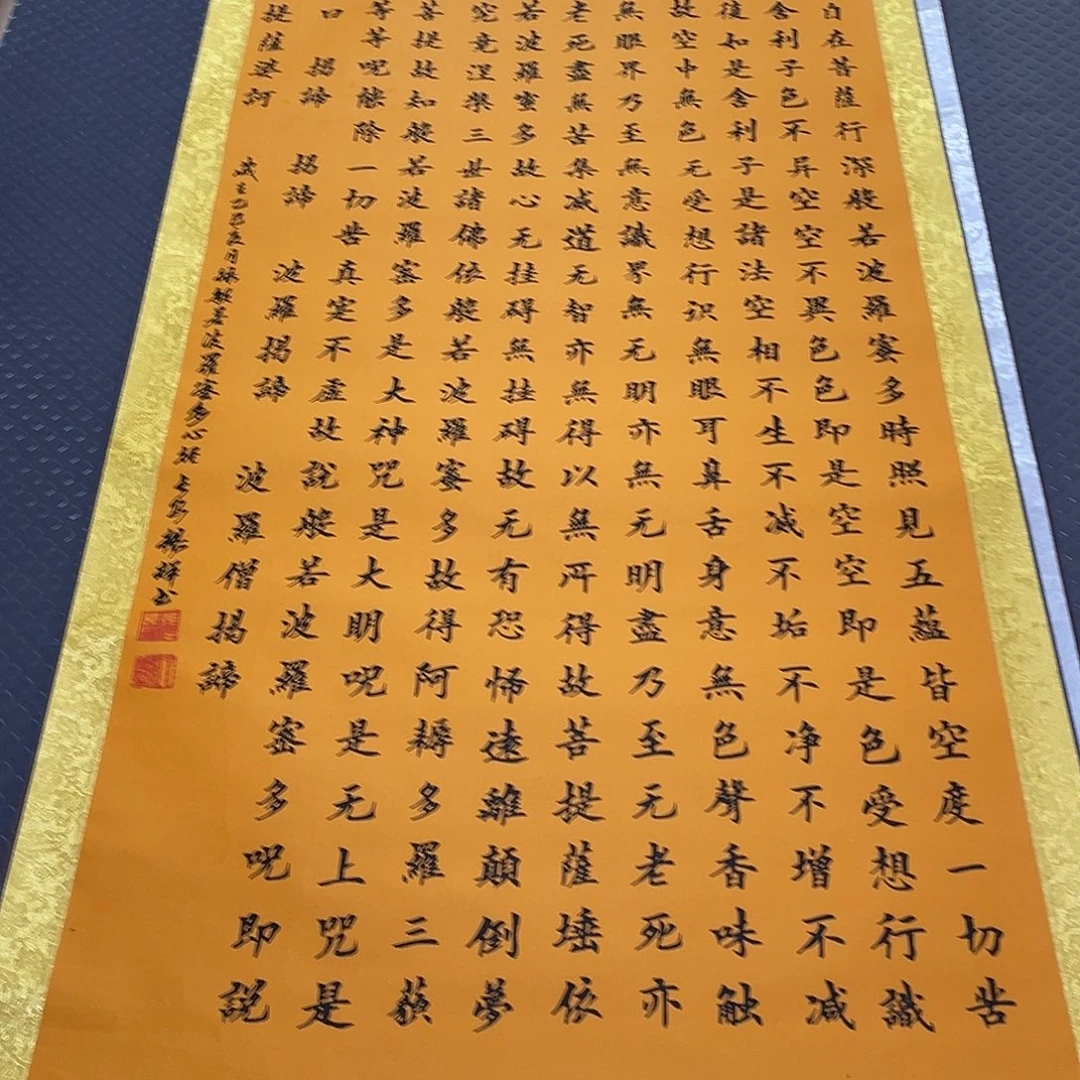 自在菩薩行深般若波羅蜜多時照見五蘊皆空度一切苦
舍利子色不异空空不異色色即是空空即是色受想行識
復如是舍利子是諸法空相不生不减不垢不净不增不减
故空中無色无受想行识無眼耳鼻舌身意無色聲香味触
無眼界乃至無意識界無无明亦無无明盡乃至无老死亦
老死盡無苦集减道无智亦無得以無所得故菩提薩埵依
若波羅蜜多故心无挂碍無挂碍故无有恐怖遠離顛倒夢
究竟涅槃三世諸佛依般若波羅蜜多故得阿耨多羅三藐
菩提故知般若波羅蜜多是大神咒是大明呪是无上咒是
等等呪能除一切苦真寔不虚故說般若波羅密多呪即説
曰 揭諦 揭諦 波羅揭諦 波羅僧揭諦
提薩婆訶
歲在乙巳夏月録般若波羅蜜多心經